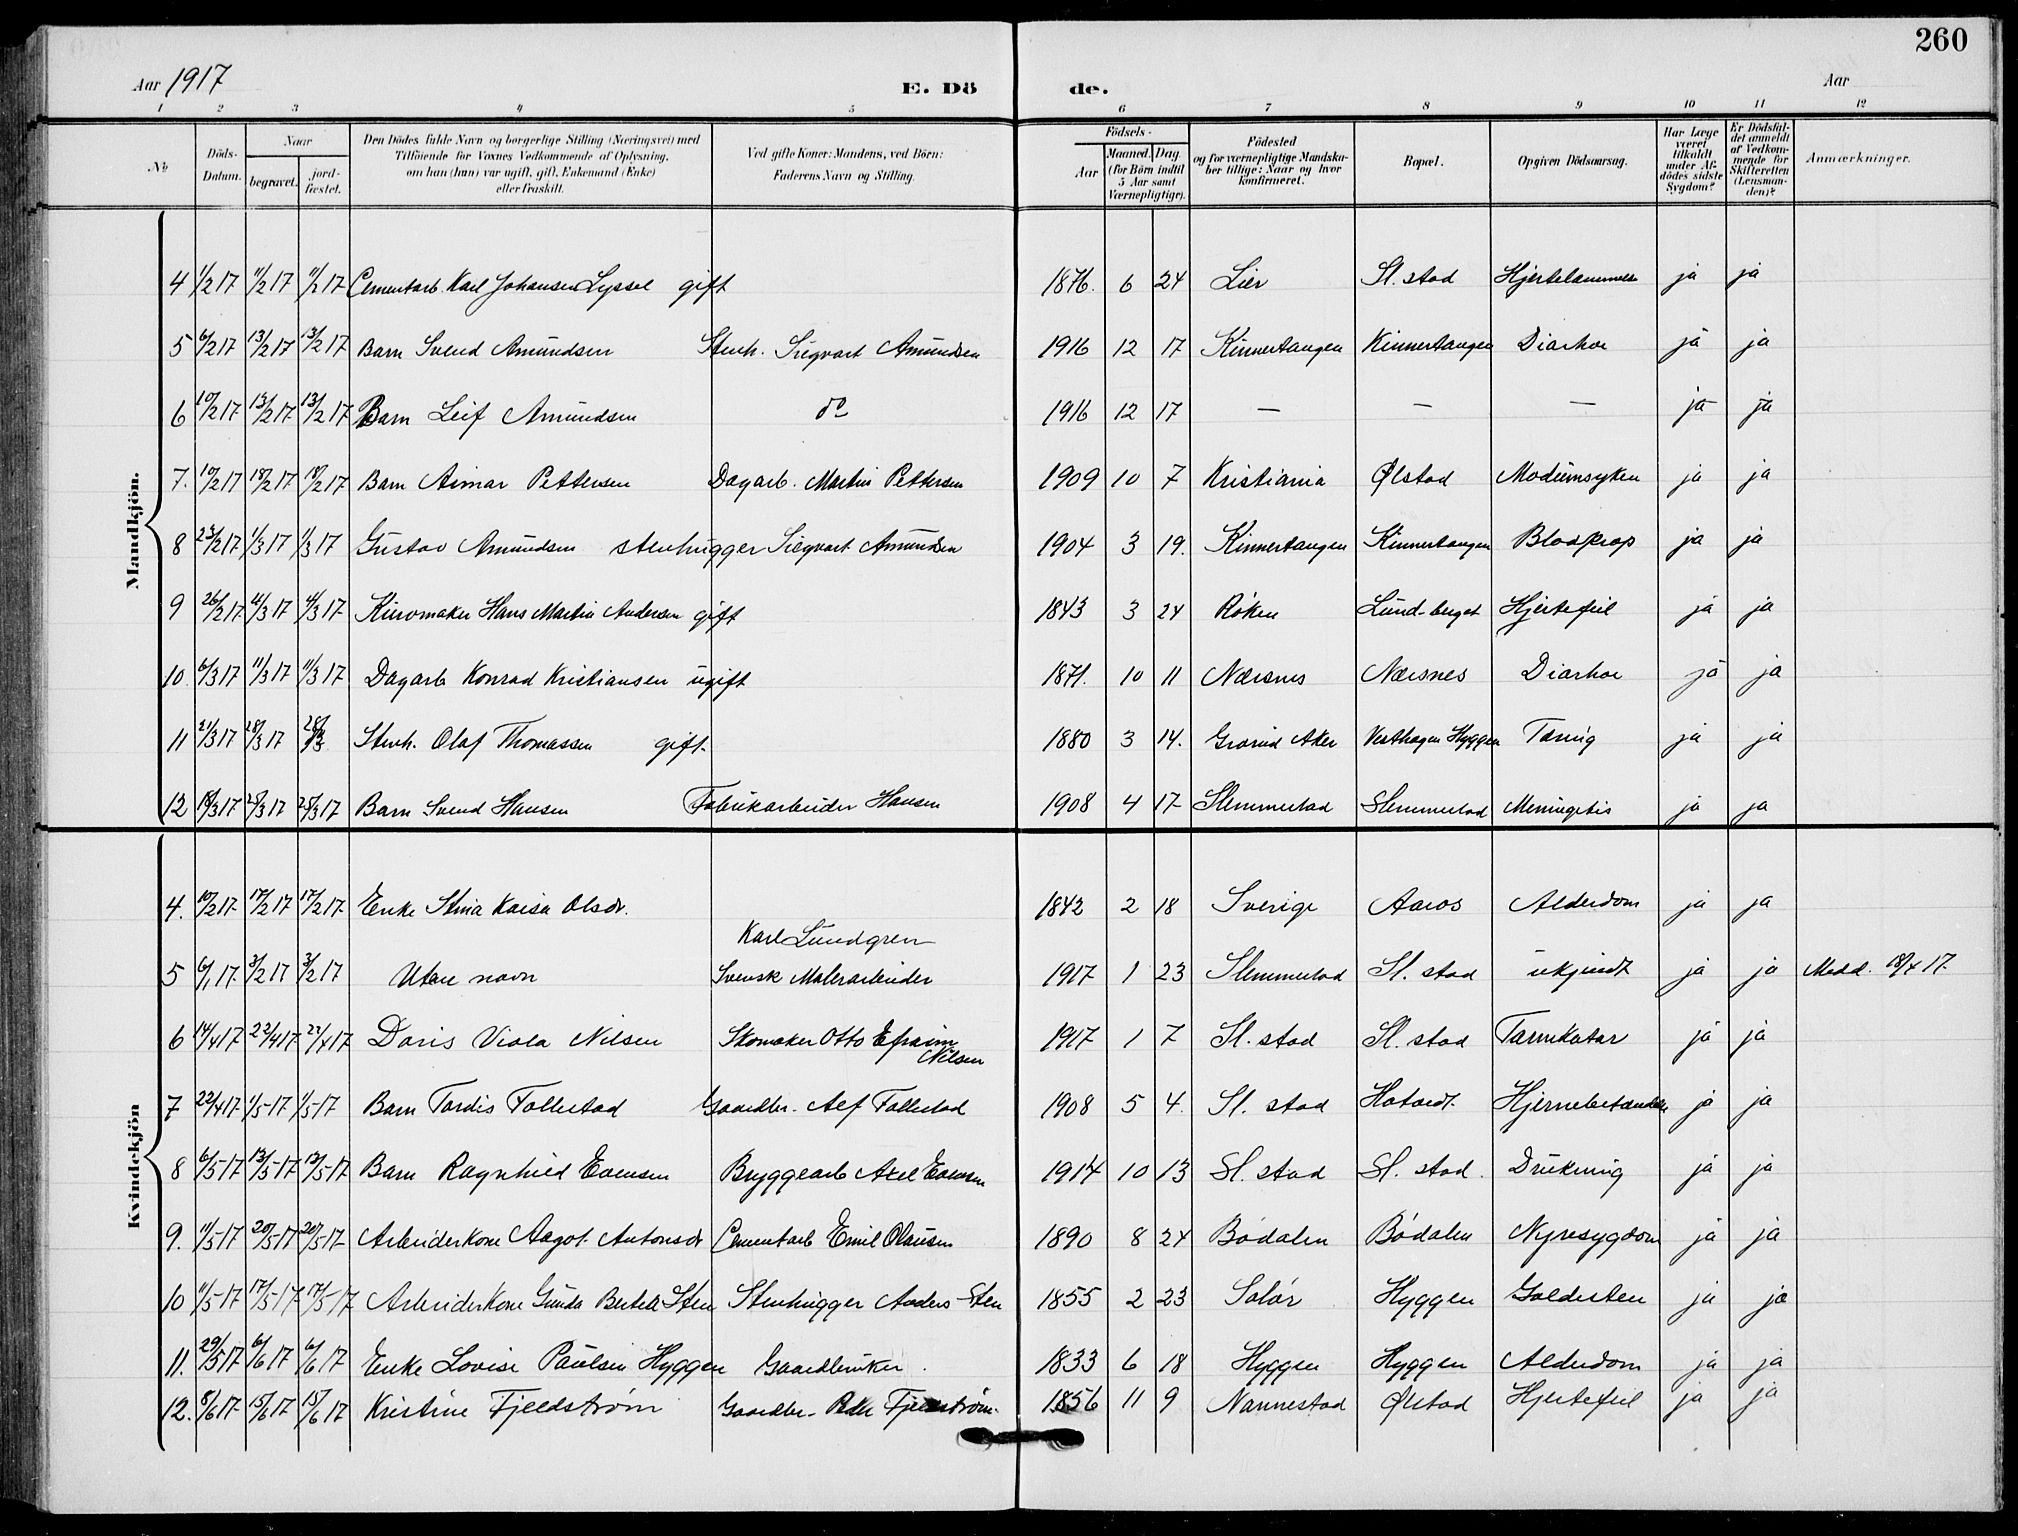 260
Aar 1917
E. Dö de.
Aar
1 2 3 4 5 6 7 8 9 10 11 12
No Döds-Datum. Naar begravet. jord-fæstet. Den Dödes fulde Navn og borgerlige Stilling (Næringsvei) med Tilföiende for Voxnes Vedkommende af Oplysning, om han (hun) var ugift, gift, Enkemand (Enke) eller fraskilt. Ved gifte Koner: Mandens, ved Börn: Faderens Navn og Stilling. Födsels- Aar Maaned. Dag. (for Börn indtil 5 Aar samt Værnepligtige). Födested og for værnepligtige Mandskaber tillige: Naar og hvor konfirmeret. Bopæl. Opgiven Dödsaarsag. Har Læge været tilkaldt under Afdödes sidste Sygdom? Er Dödsfaldet anmeldt af Vedkommende for Skifteretten (Lensmanden)? Anmærkninger.
Mandkjön.
4 1/2 17 11/2 17 11/2 17 Cementarb. Karl Johansen gift 1876. 6 24 Lier Sl. stad Hjertelammelse ja ja
5 6/2 17 13/2 17 13/2 17 Barn Svend Amundsen Stenh. Sigvart Amundsen 1916 12 17 Kinnertangen Kinnertangen Diarhoe ja ja
6 10/2 17 13/2 17 13/2 17 Barn Leif Amundsen do 1916 12 17 — — — ja ja
7. 10/2 17 18/2 17 18/2 17 Barn Aimar Pettersen Dagarb. Martin Pettersen 1909 10 7 Kristiania Ølstad ja ja
8 23/2 17 1/3 17 1/3 17 Gustav Amundsen stenhugger Sigvart Amundsen 1904 3 19. Kinnertangen Kinnertangen Blodprop ja ja
9 26/2 17 4/3 17 4/3 17 Hans Martin Andersen gift 1843 3 24 Røken Hjertefeil ja ja
10 6/3 17 11/3 17 11/3 17 Dagarb Konrad Kristiansen ugift 1871. 10 11 Nærsnes Nærsnes Diarhoe ja ja
11 21/3 17 28/3 17 28/3 Stenh. Olaf Thomassen gift. 1880 3 14. Grorud Aker Vesthagen Hyggen Tæring ja ja
12 18/3 17 25/3 17 25/3 17 Barn Svend Hansen Fabrikarbeider Hansen 1908 4 17 Slemmestad Slemmestad Meningitis ja ja
Kvindekjön
4. 10/2 17 17/2 17 17/2 17 Enke Stina Kaisa Olsdr. 1842 2 18 Sverige Aaros Alderdom ja ja
Karl Lundgren
5 6/1 17. 3/2 17 3/2 17 Uten navn Svensk Malerarbeider 1917 1 23 Slemmestad Sl. stad ukjendt ja ja Medd. 18/4 17
6 14/4 17 22/4 17 22/4 17 Doris Viola Nilsen Skomaker Otto Efraim Nilsen 1917 1 7 Sl. stad Sl. stad Tarmkatar ja ja
7 22/4 17 1/5 17 1/5 17 Barn Tordis Follestad Gaardbr. Alf Follestad 1908 5 4. Sl. stad Hjernebetændelse ja ja
8 6/5 17 13/5 17 13/5 17 Barn Ragnhild Evensen Bryggearb Axel Evensen 1914 10 13 Sl. stad Sl. stad. Drukning ja ja
9. 11/5 17 20/5 17 20/5 17 Arbeiderkone Aagot Antonsdr Cementarb Emil Olausen 1890 8 24 Bødalen Bødalen Nyresygdom ja ja
10 11/5 17 17/5 17 17/5 17 Arbeiderkone Gunda Sten Stenhugger Anders Sten 1855 2 23 Solør Hyggen Galdesten ja ja
11. 29/5 17 6/6 17 6/6 17 Enke Lovise Paulsen Hyggen Gaardbruker. 1833 6 18 Hyggen Hyggen Alderdom ja ja
12. 8/6 17 15/6 17 15/6 17 Kristine Fjeldstrøm Gaardbr. Fjeldstrøm. 1856 11 9 Nannestad Ølstad Hjertefeil ja ja